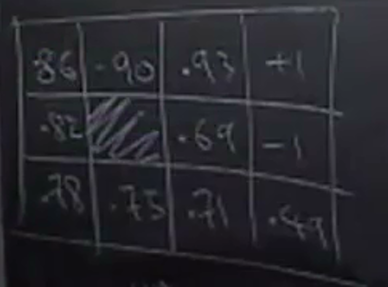 .86 .90 .93 +1
.82 .69 -1
.78 .75 .71 .49